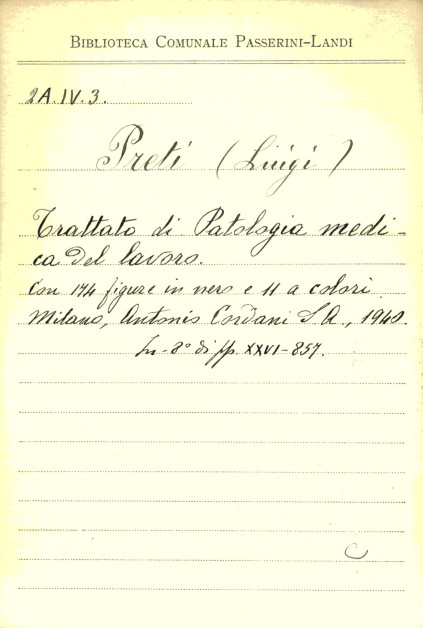 BIBLIOTECA COMUNALE PASSERINI-LANDI
2A.IV.3.
Preti (Luigi)
Trattato di Patologia medi-
ca del lavoro.
Con 174 figure in nero e 11 a colori.
Milano, Antonio Cordani S.A., 1940.
In-8° di pp. XXVI-857.
C